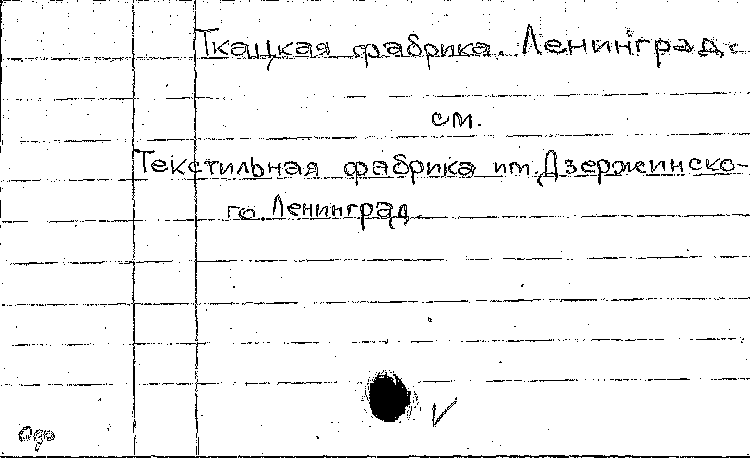 Ткацкая фабрика. Ленинград.
см.
Текстильная фабрика им. Дзержинско-
го. Ленинград.